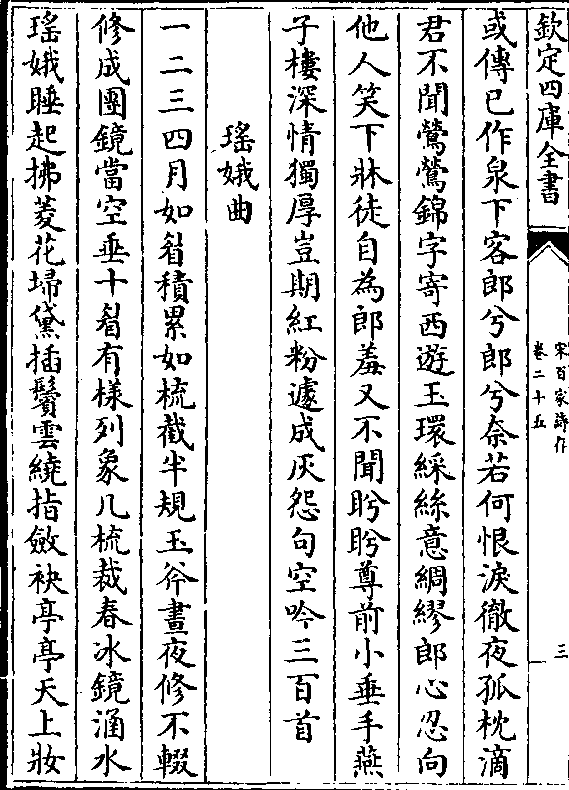 欽定四庫全書
宋百家詩存
卷二十五
三
或傳已作泉下客郎兮郎兮奈若何恨淚徹夜孤枕滴
君不聞鶯鶯錦字寄西遊玉環綵絲意綢繆郎心忍向
他人笑下牀徒自為郎羞又不聞盻盻尊前小垂手燕
子樓深情獨厚豈期紅粉遽成灰怨句空吟三百首
瑤娥曲
一二三四月如眉積累如梳截半規玉斧晝夜修不輟
修成團鏡當空垂十眉有樣列象几梳裁春冰鏡涵水
瑤娥睡起拂菱花埽黛插鬢雲繞指斂袂亭亭天上妝